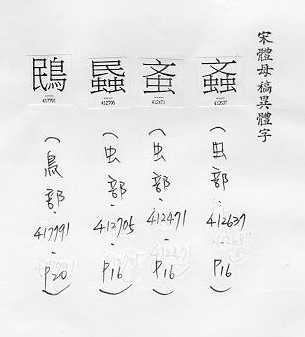 宋體母稿異體字
䘇
412637
(虫部·412637·P16)
蚉
412471
(虫部·412471·P16)
蟁
412705
(虫部·412705·P16)
鴖
417791
(鳥部·417791·P20)